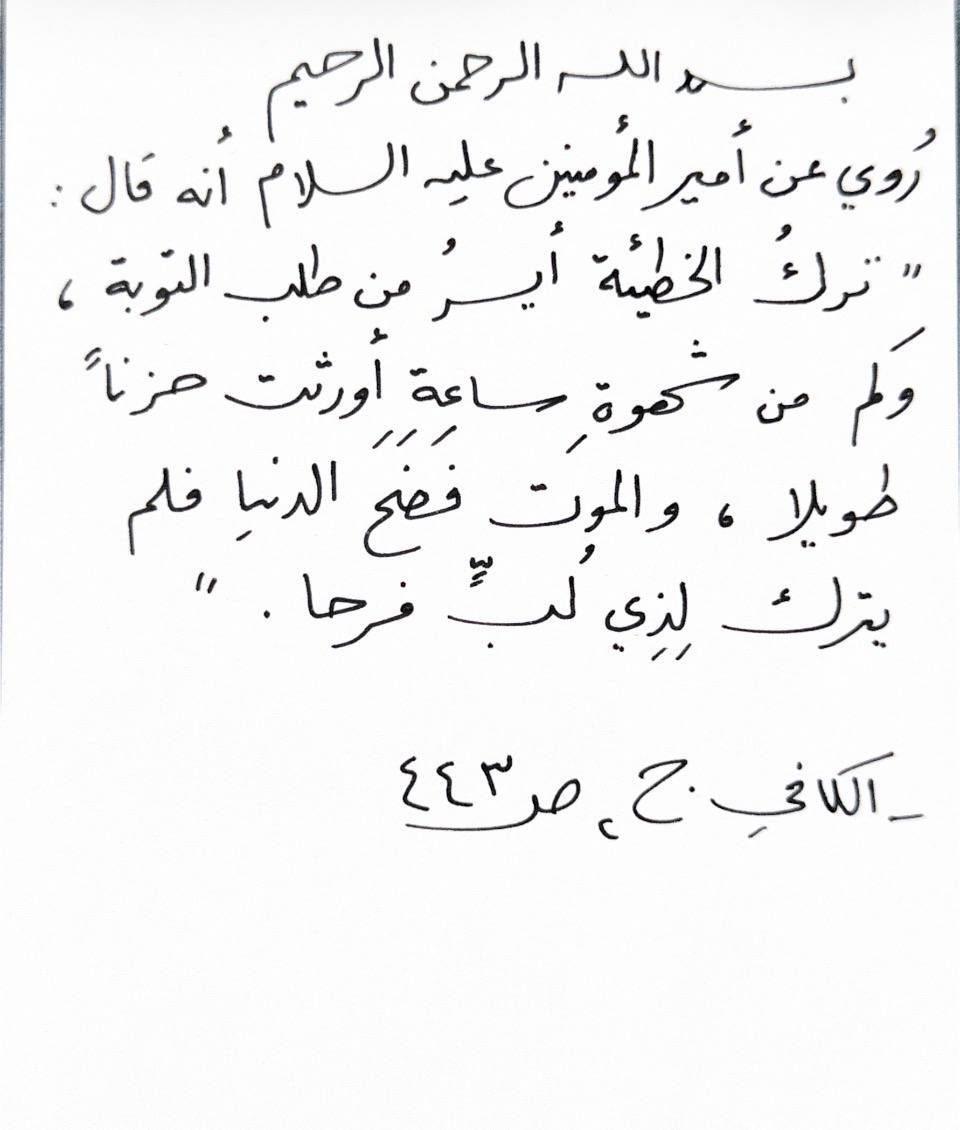 بسم الله الرحمن الرحيم
رُوي عن أمير المؤمنين عليه السلام أنه قال :
"تركُ الخطيئة أيسرُ من طلب التوبة ،
وَكم من شهوةِ ساعةٍ أورثت حزناً
طويلا ، والموت فَضَحَ الدنيا فلم
يترك لِذِي لُبٍّ فرحا . "
_ الكافي ج ٢ ص ٤٤٣